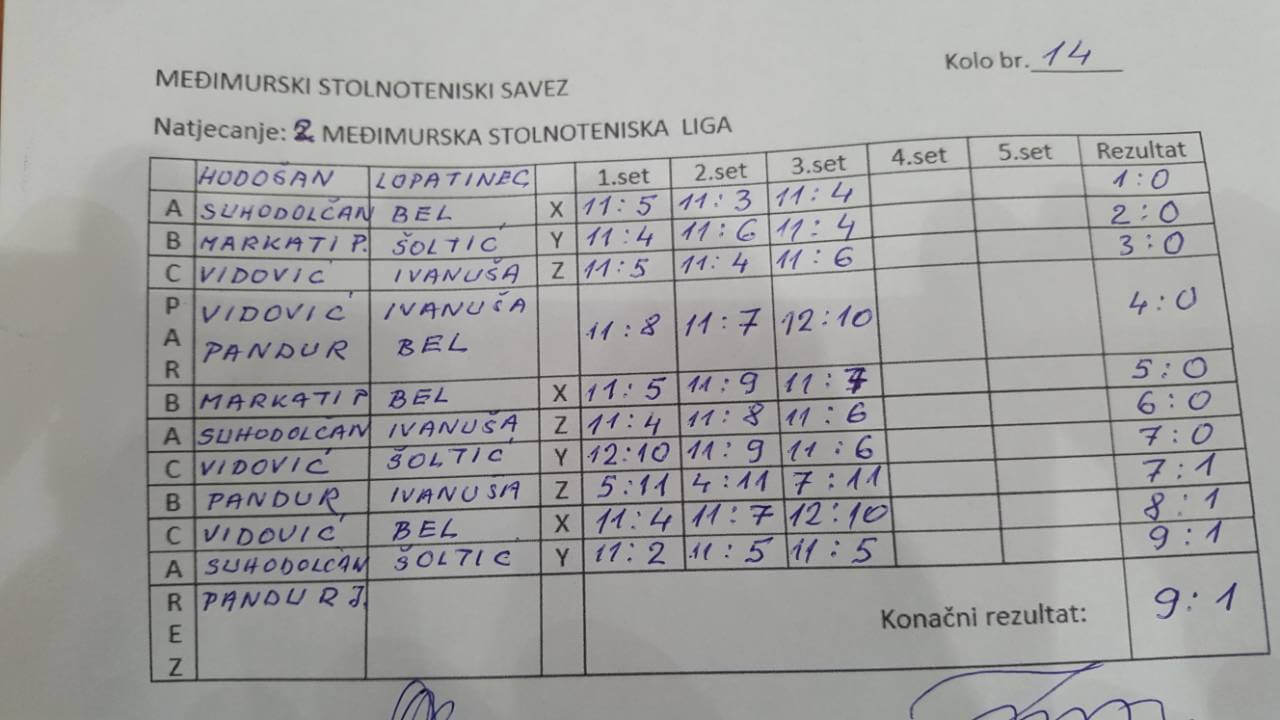 Kolo br. 14
MEĐIMURSKI STOLNOTENISKI SAVEZ
Natjecanje: 2 MEĐIMURSKA STOLNOTENISKA LIGA
HODOŠAN LOPATINEC 1.set 2.set 3.set 4.set 5.set Rezultat
A SUHODOLČAN BEL X 11:5 11:3 11:4 1:0
B MARKATI P. ŠOLTIĆ Y 11:4 11:6 11:4 2:0
C VIDOVIĆ IVANUŠA Z 11:5 11:4 11:6 3:0
P VIDOVIĆ IVANUŠA
A 11:8 11:7 12:10 4:0
PANDUR BEL
R
B MARKATI P BEL X 11:5 11:9 11:7 5:0
A SUHODOLČAN IVANUŠA Z 11:4 11:8 11:6 6:0
C VIDOVIĆ ŠOLTIĆ Y 12:10 11:9 11:6 7:0
B PANDUR IVANUSA Z 5:11 4:11 7:11 7:1
C VIDOVIĆ BEL X 11:4 11:7 12:10 8:1
A SUHODOLČAN ŠOLTIĆ Y 11:2 11:5 11:5 9:1
R PANDUR J.
E Konačni rezultat: 9:1
Z